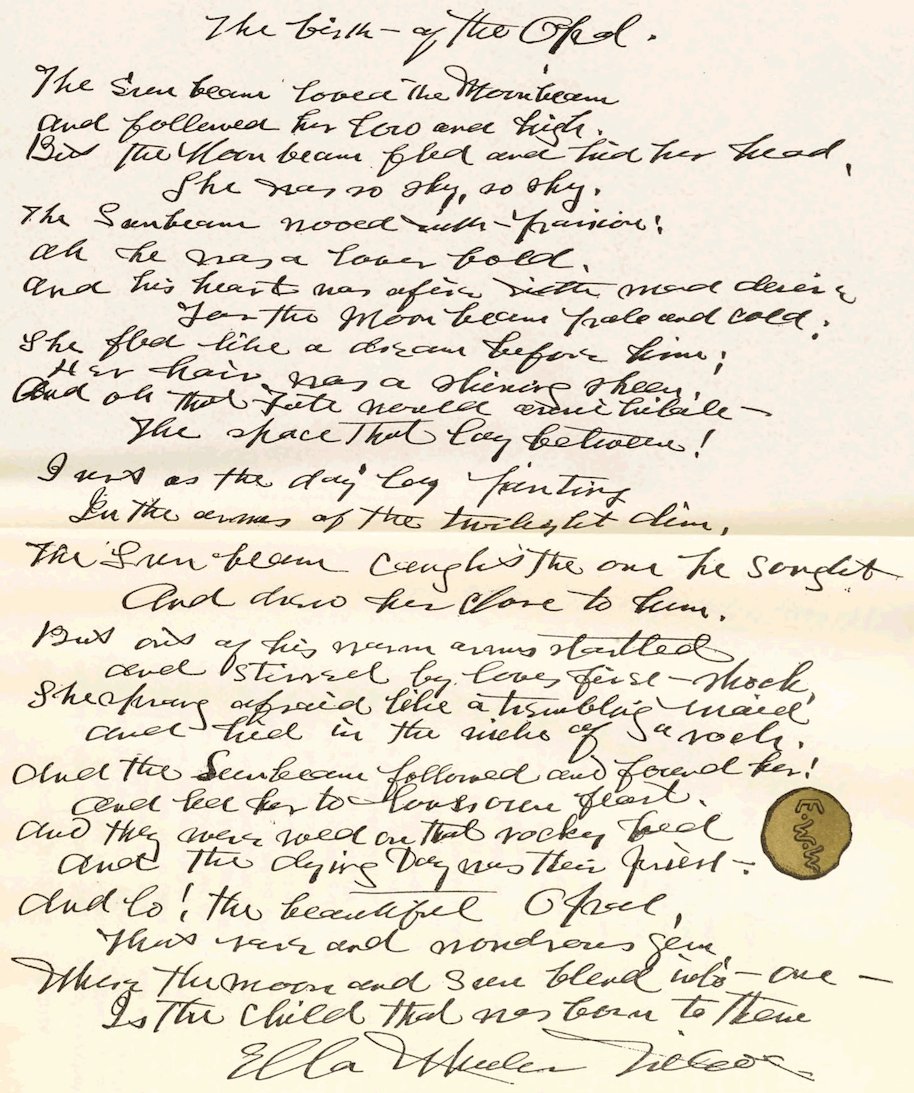 The birth of the Opal.
The Sunbeam loved the Moonbeam
and followed her low and high.
But the Moonbeam fled and hid her head,
She was so shy, so shy.
The Sunbeam wooed with passion;
ah he was a lover bold.
And his heart was afire with mad desire
For the Moonbeam pale and cold.
She fled like a dream before him;
Her hair was a shining sheen,
And oh that Fate would annihilate
The space that lay between!
Just as the day lay panting
In the arms of the twilight dim,
The Sunbeam caught the one he sought
And drew her close to him.
But out of his warm arms startled
and stirred by love's first shock,
She sprang afraid like a trembling maid
and hid in the niche of a rock.
And the Sunbeam followed and found her!
and led her to Love's own feast.
And they were wed on that rocky bed
And the dying Day was their priest.
And lo! the beautiful Opal,
That rare and wondrous gem
Where the moon and Sun blend into one
Is the child that was born to them
Ella Wheeler Wilcox
E.W.W